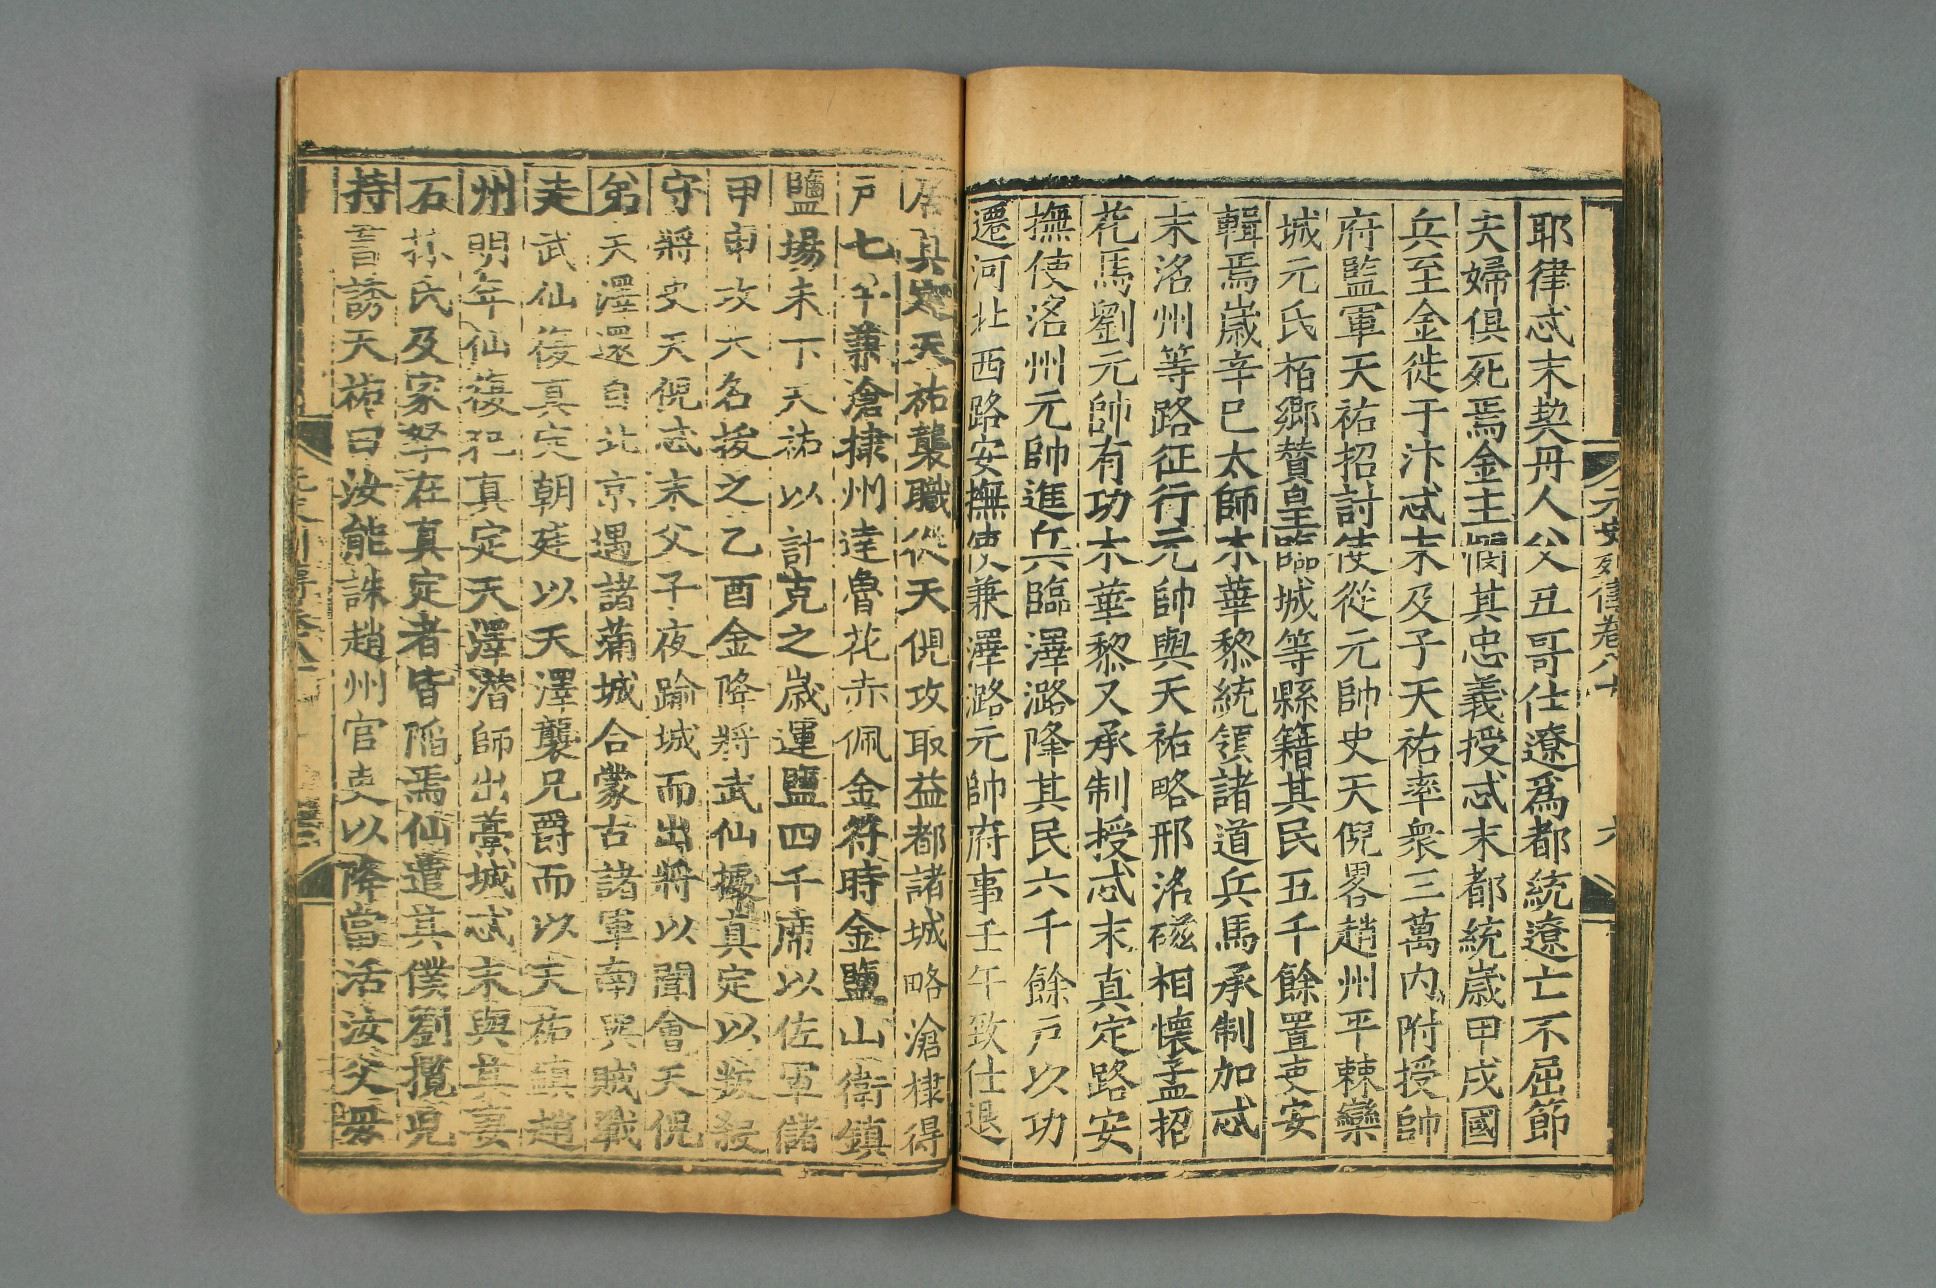 元史列傳卷八十
六
耶律忒末契丹人父丑哥仕遼爲都統遼亡不屈節
夫婦俱死焉金主憫其忠義授忒末都統歲甲戌國
兵至金徙于汴忒末及子天祐率衆三萬内附授帥
府監軍天祐招討使從元帥史天倪畧趙州平棘欒
城元氏栢鄉賛皇臨城等縣籍其民五千餘置吏安
輯焉歲辛巳太師木華黎統領諸道兵馬承制加忒
末洺州等路征行元帥與天祐略邢洺磁相懷孟招
花馬劉元帥有功木華黎又承制授忒末真定路安
撫使洺州元帥進兵臨澤潞降其民六千餘戸以功
遷河北西路安撫使兼澤潞元帥府事壬午致仕退
居真定天祐襲職從天倪攻取益都諸城略滄棣得
戸七千兼滄棣州達魯花赤佩金符時金鹽山衛鎮
鹽場未下天祐以計克之歲運鹽四千席以佐軍儲
甲申攻大名拔之乙酉金降將武仙據真定以叛殺
守將史天倪忒末父子夜踰城而出將以聞會天倪
弟天澤還自北京遇諸蒲城合蒙古諸軍南與賊戰
走武仙復真定朝廷以天澤襲兄爵而以天祐鎮趙
州明年仙復犯真定天澤潜師出藁城忒末與其妻
石抹氏及家孥在真定者皆陷焉仙遣其僕劉攬兒
持書誘天祐曰汝能誅趙州官吏以降當活汝父母